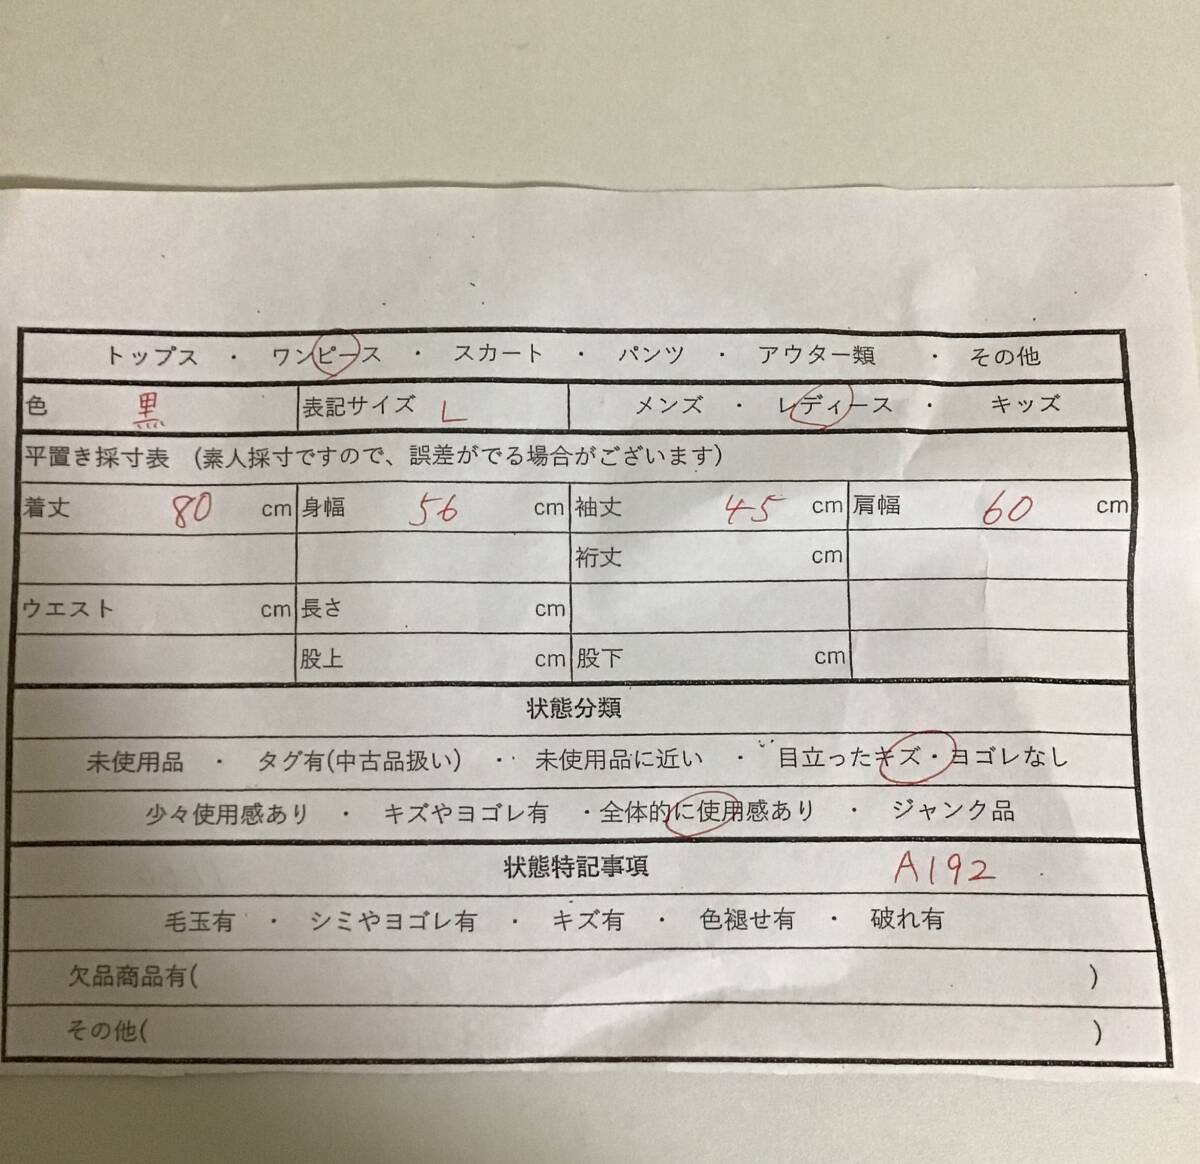 トップス ・ ワンピース ・ スカート ・ パンツ ・ アウター類 ・ その他
色 黒 表記サイズ L メンズ ・ レディース ・ キッズ
平置き採寸表 (素人採寸ですので、誤差がでる場合がございます)
着丈 80 cm 身幅 56 cm 袖丈 45 cm 肩幅 60 cm
裄丈 cm
ウエスト cm 長さ cm
股上 cm 股下 cm
状態分類
未使用品 ・ タグ有(中古品扱い) ・ 未使用品に近い ・ 目立ったキズ・ヨゴレなし
少々使用感あり ・ キズやヨゴレ有 ・全体的に使用感あり ・ ジャンク品
状態特記事項 A192
毛玉有 ・ シミやヨゴレ有 ・ キズ有 ・ 色褪せ有 ・ 破れ有
欠品商品有( )
その他( )